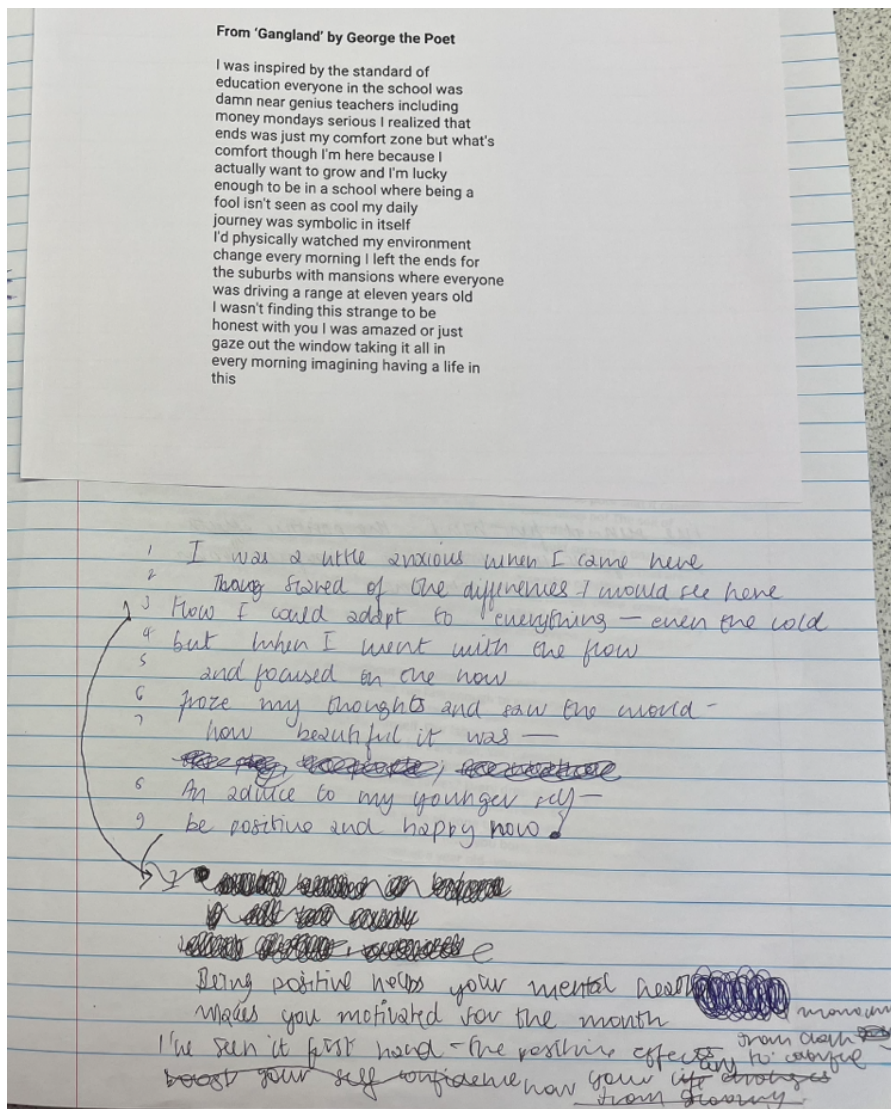 From ‘Gangland’ by George the Poet
I was inspired by the standard of
education everyone in the school was
damn near genius teachers including
money mondays serious I realized that
ends was just my comfort zone but what's
comfort though I'm here because I
actually want to grow and I'm lucky
enough to be in a school where being a
fool isn't seen as cool my daily
journey was symbolic in itself
I'd physically watched my environment
change every morning I left the ends for
the suburbs with mansions where everyone
was driving a range at eleven years old
I wasn't finding this strange to be
honest with you I was amazed or just
gaze out the window taking it all in
every morning imagining having a life in
this
1 I was a little anxious when I came here
2 scared of the differences I would see here
3 How I could adapt to everything — even the cold
4 but when I went with the flow
5 and focused on the now
6 froze my thoughts and saw the world -
7 how beautiful it was —
8 An advice to my younger self —
9 be positive and happy now!
Being positive helps your mental
makes you motivated for the month
I've seen it first hand - the positive effects
from dark to
boost your self confidence how your life changes
from gloomy